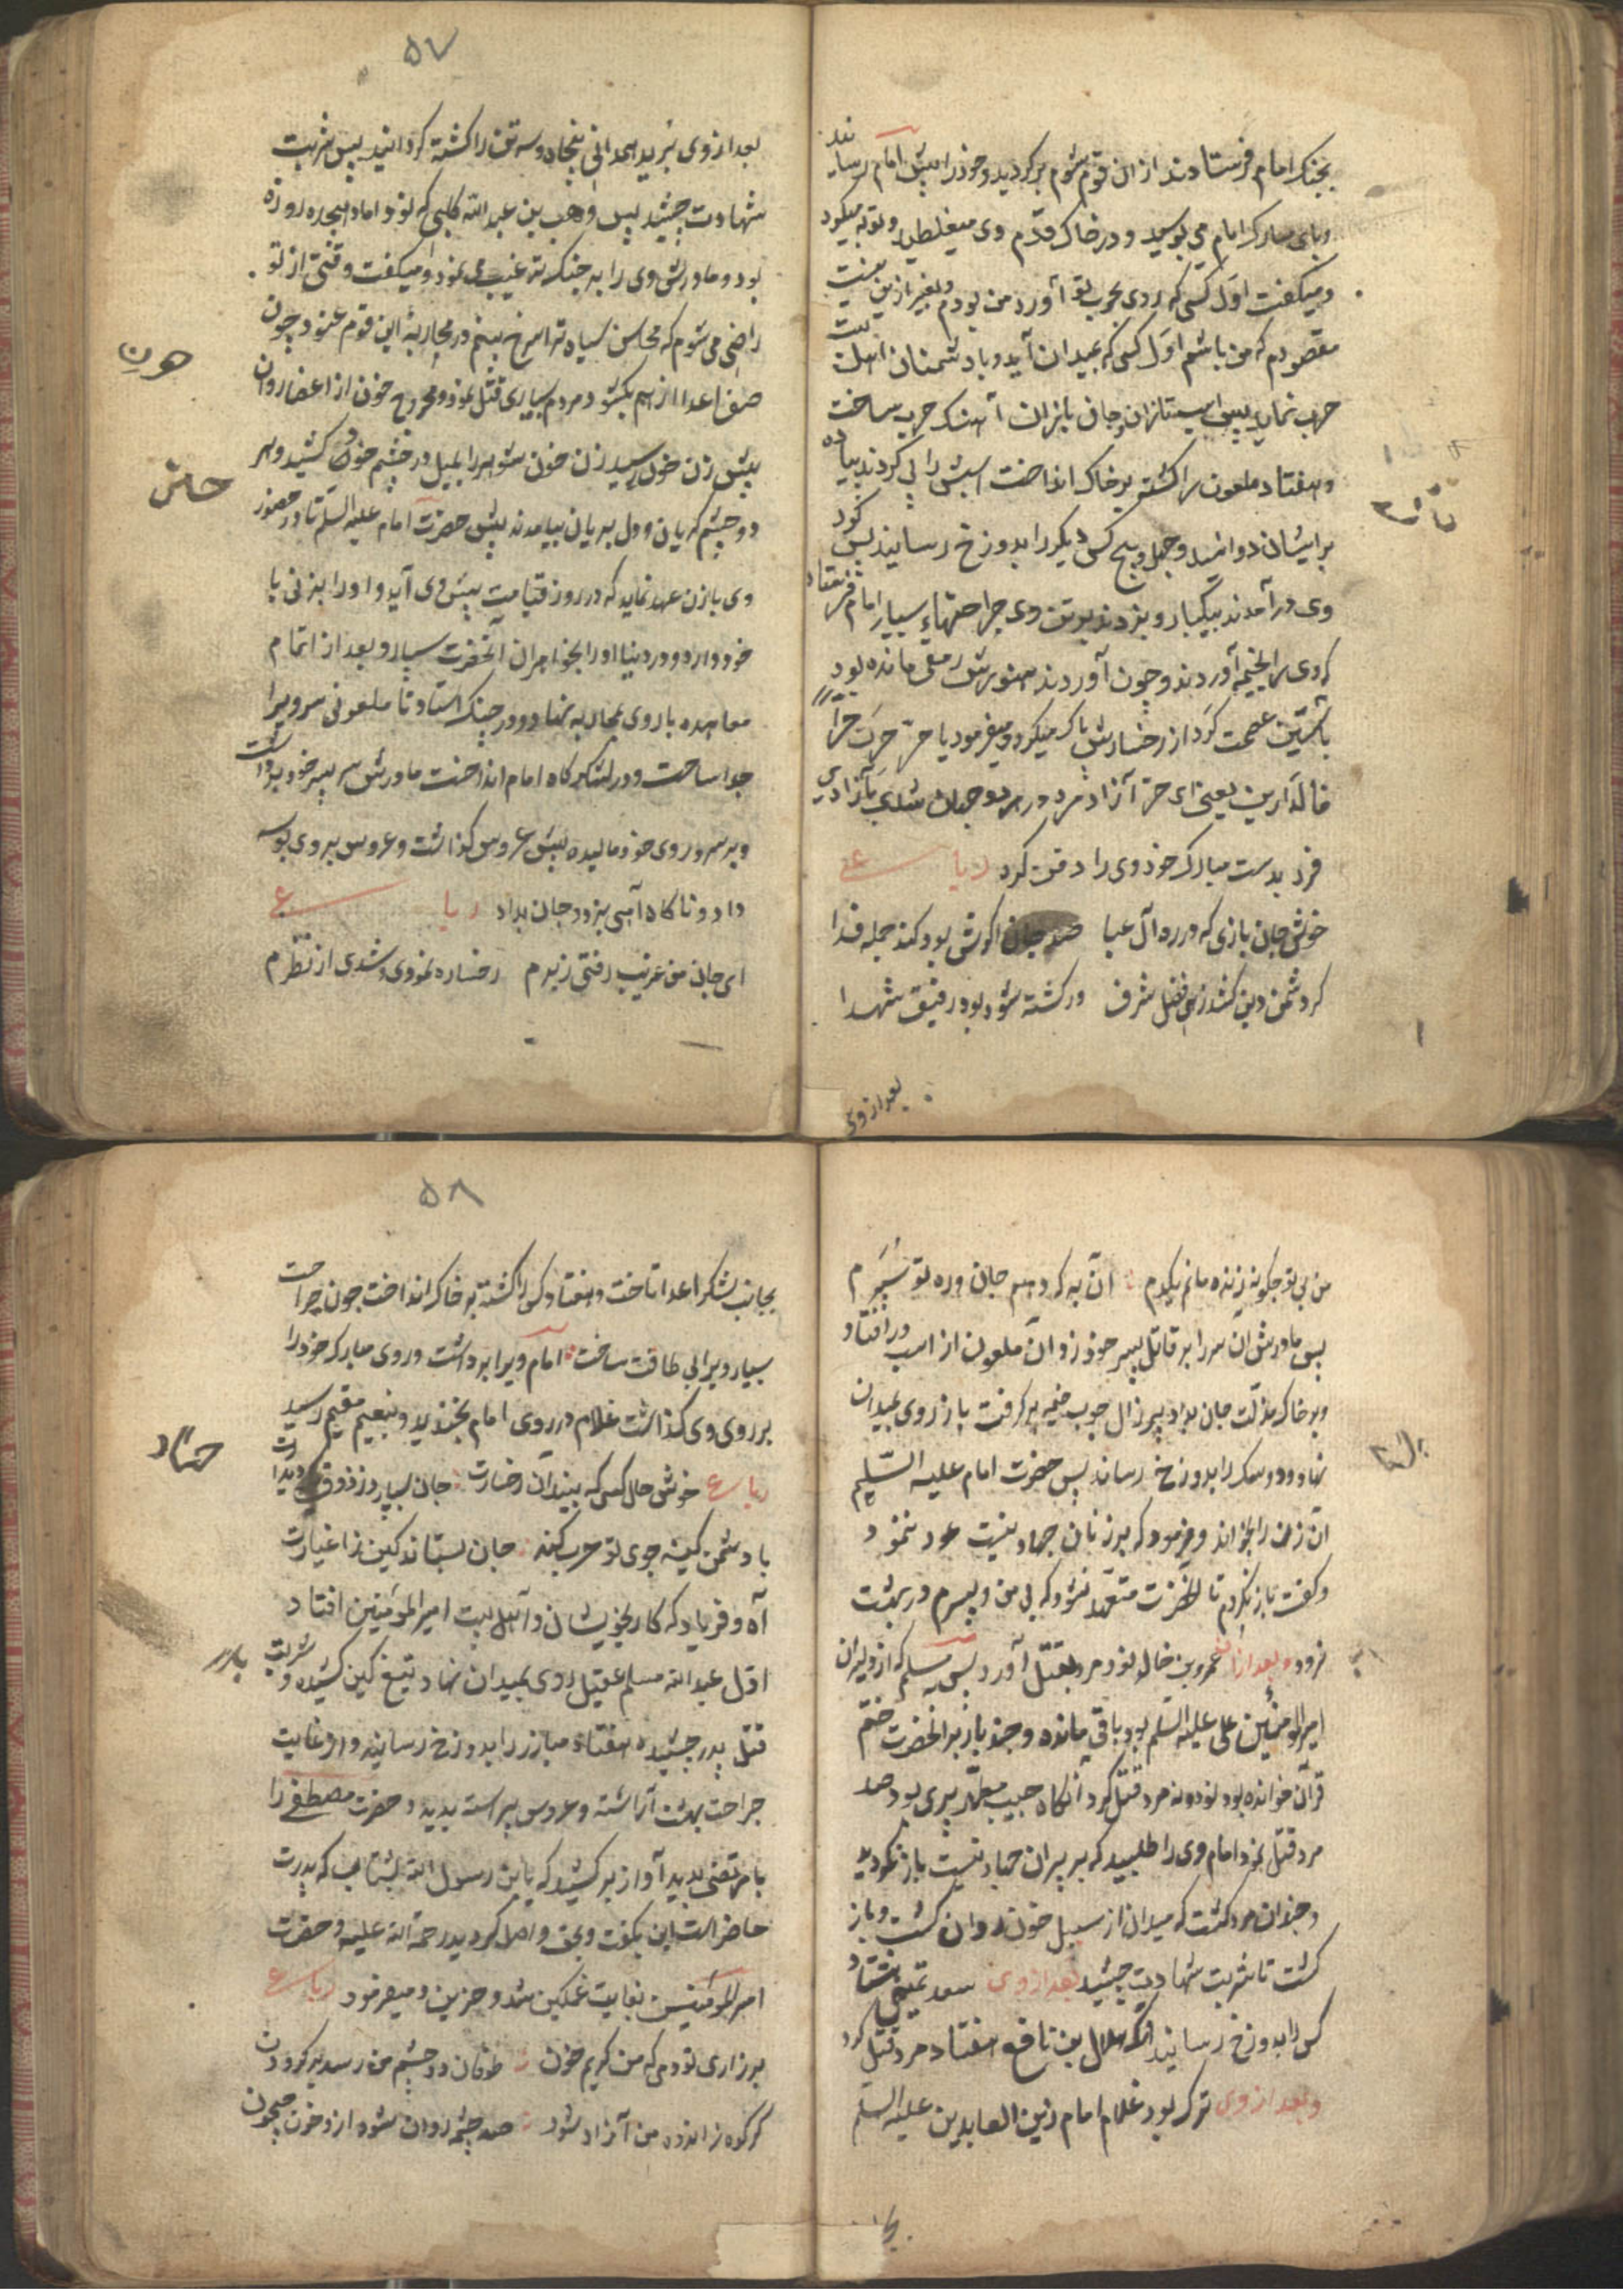 بجنک امام فرستادند از ان قوم شوم برکردید و خود را پیش امام رساند
و پای مبارک امام می بوسید و در خاک قدم وی میغلطید و توبه میکرد
و میکفت اول کسی که روی بحرب تو آورد من بودم و بغیر ازین نیست
مقصودم که من باشم اول کسی که بمیدان آید و با دشمنان اهلبیت
حرب نماید پس اسب تازان و جان بازان آهنک حرب ساخت
و هفتاد ملعون را کشته بر خاک انداخت اسبش را پی کردند پیاده
برایشان دوانید و چهل و پنج کس دیکر را بدوزخ رسانید پس کرد
وی در آمدند بیکبار و بزدند بر تن وی جراحتهاء بسیار امام فرستاد
که وی را بخیمه آورند و چون آوردند هنوزش رمقی مانده بود
باستین عصمت کرد از رخسارش پاک میکرد و میفرمود یا حر حرت حرا
فالدارین یعنی ای حر آزاد مرد در هر دو جهان شدی بآزادی
فرد بدست مبارک خود وی را دفن کرد رباعی
خوش جان بازی که در ره آل عبا صد جان اکرش بود کند جمله فدا
کر دشمن دین کشد زهی فضل شرف ور کشته شود بود رفیق شهدا
بعد از وی
۵۷
بعد از وی بریر همدانی پنجاه و سه تن را کشته کردانید پس شربت
شهادت چشید پس وهب بن عبدالله کلبی که نو داماد هیجده روزه
بود و مادرش وی را به جنک ترغیب می نمود و میکفت وقتی از تو
راضی می شوم که محاسن سیاه ترا سرخ بینم در محاربهٔ این قوم عنود چون
صف اعدا از هم بکشود مردم بسیاری قتل نمود و مجروح خون از اعضا روان
پیش زن خود رسید زن خون شوهر را بمیل در چشم خود کشید و هر
دو چشم کریان و دل بریان بیامدند پیش حضرت امام علیه السلم تا در حضور
وی با زن عهد نماید که در روز قیامت پیش وی آید و او را بزنی با
خود دارد و در دنیا او را بخواهران آنحضرت سپارد و بعد از اتمام
معاهده باز روی بمحاربه نهاد و در جنک استاد تا ملعونی سر ویرا
جدا ساخت و در لشکرکاه امام انداخت مادرش سر پسر خود برداشت
و بر سر و روی خود مالیده پیش عروس کذاشت و عروس بر وی بوسه
داد و ناکاه آهی بزد و جان بداد رباعی
ای جان من غریب رفتی ز برم رخساره نمودی و شدی از نظرم
من بی تو چکونه زنده مانم یکدم آن به که دهم جان و ره تو سپرم
پس مادرش ان سر را بر قاتل پسر خود زد و آن ملعون از اسب در افتاد
و بر خاک مذلت جان بداد پیر زال چوب خیمه بر کرفت باز روی بمیدان
نهاد و دو سک را بدوزخ رساند پس حضرت امام علیه السلم
ان زن را بخواند و فرمود که بر زنان جهاد نیست عود نمود
و کفت باز نکردم تا آنحضرت متعهد نشود که بی من و پسرم در بهشت
نرود و بعد ازان عمرو بن خالد نود مرد بقتل آورد پس مسلم که از دلیران
امیر المؤمنین علی علیه السلم بود باقی مانده و چند بار بر آنحضرت ختم
قرآن خوانده بود نود و نه مرد قتل کرد آنکاه حبیب مطهر پیری بود صد
مرد قتل نمود امام وی را طلبید که بر پیران جهاد نیست باز نکردید
و چندان مرد کشت که میدان از سبیل خون روان کشت و باز
کشت تا شربت شهادت چشید بعد از وی سعد تمیمی هشتاد
کس را بدوزخ رسانید آنکه هلال بن نافع هفتاد مرد قتل کرد
و بعد از وی ترک بود غلام امام زین العابدین علیه السلم
۵۸
بجانب لشکر اعدا تاخت و هفتاد کس را کشته بر خاک انداخت چون جراحت
بسیار ویرا بی طاقت ساخت امام ویرا برداشت و روی مبارک خود را
بر روی وی کذاشت غلام در روی امام بخندید و بنعیم مقیم رسید
رباعی خوش حال کسی که بیند آن رخسارت جان بسپارد ز ذوق دیدارت
با دشمن کینه جوی تو حرب کند جان بستاند کین ز اغیارت
آه و فریاد که کار بخویشان و اهل بیت امیر المؤمنین افتاد
اول عبد الله مسلم عقیل روی بمیدان نهاد تیغ کین کشیده و شربت
قتل پدر چشیده هفتاد مبارز را بدوزخ رسانید و از غایت
جراحت بهشت آراسته و عروس پیراسته بدید و حضرت مصطفی را
با مرتضی بدید آواز بر کشید که یا بن رسول الله بشتاب که پدرت
حاضر است این بکفت و بحق واصل کردید رحمة الله علیه و حضرت
امیر المؤمنین بغایت غمکین شد و حزین و میفرمود رباعی
بر زاری تو دمی که من کریم خون طوفان دو چشم من رسد بر کردون
کر کوه ز اندوه من آزاد شود صد چشمه روان شود از و خون جیحون